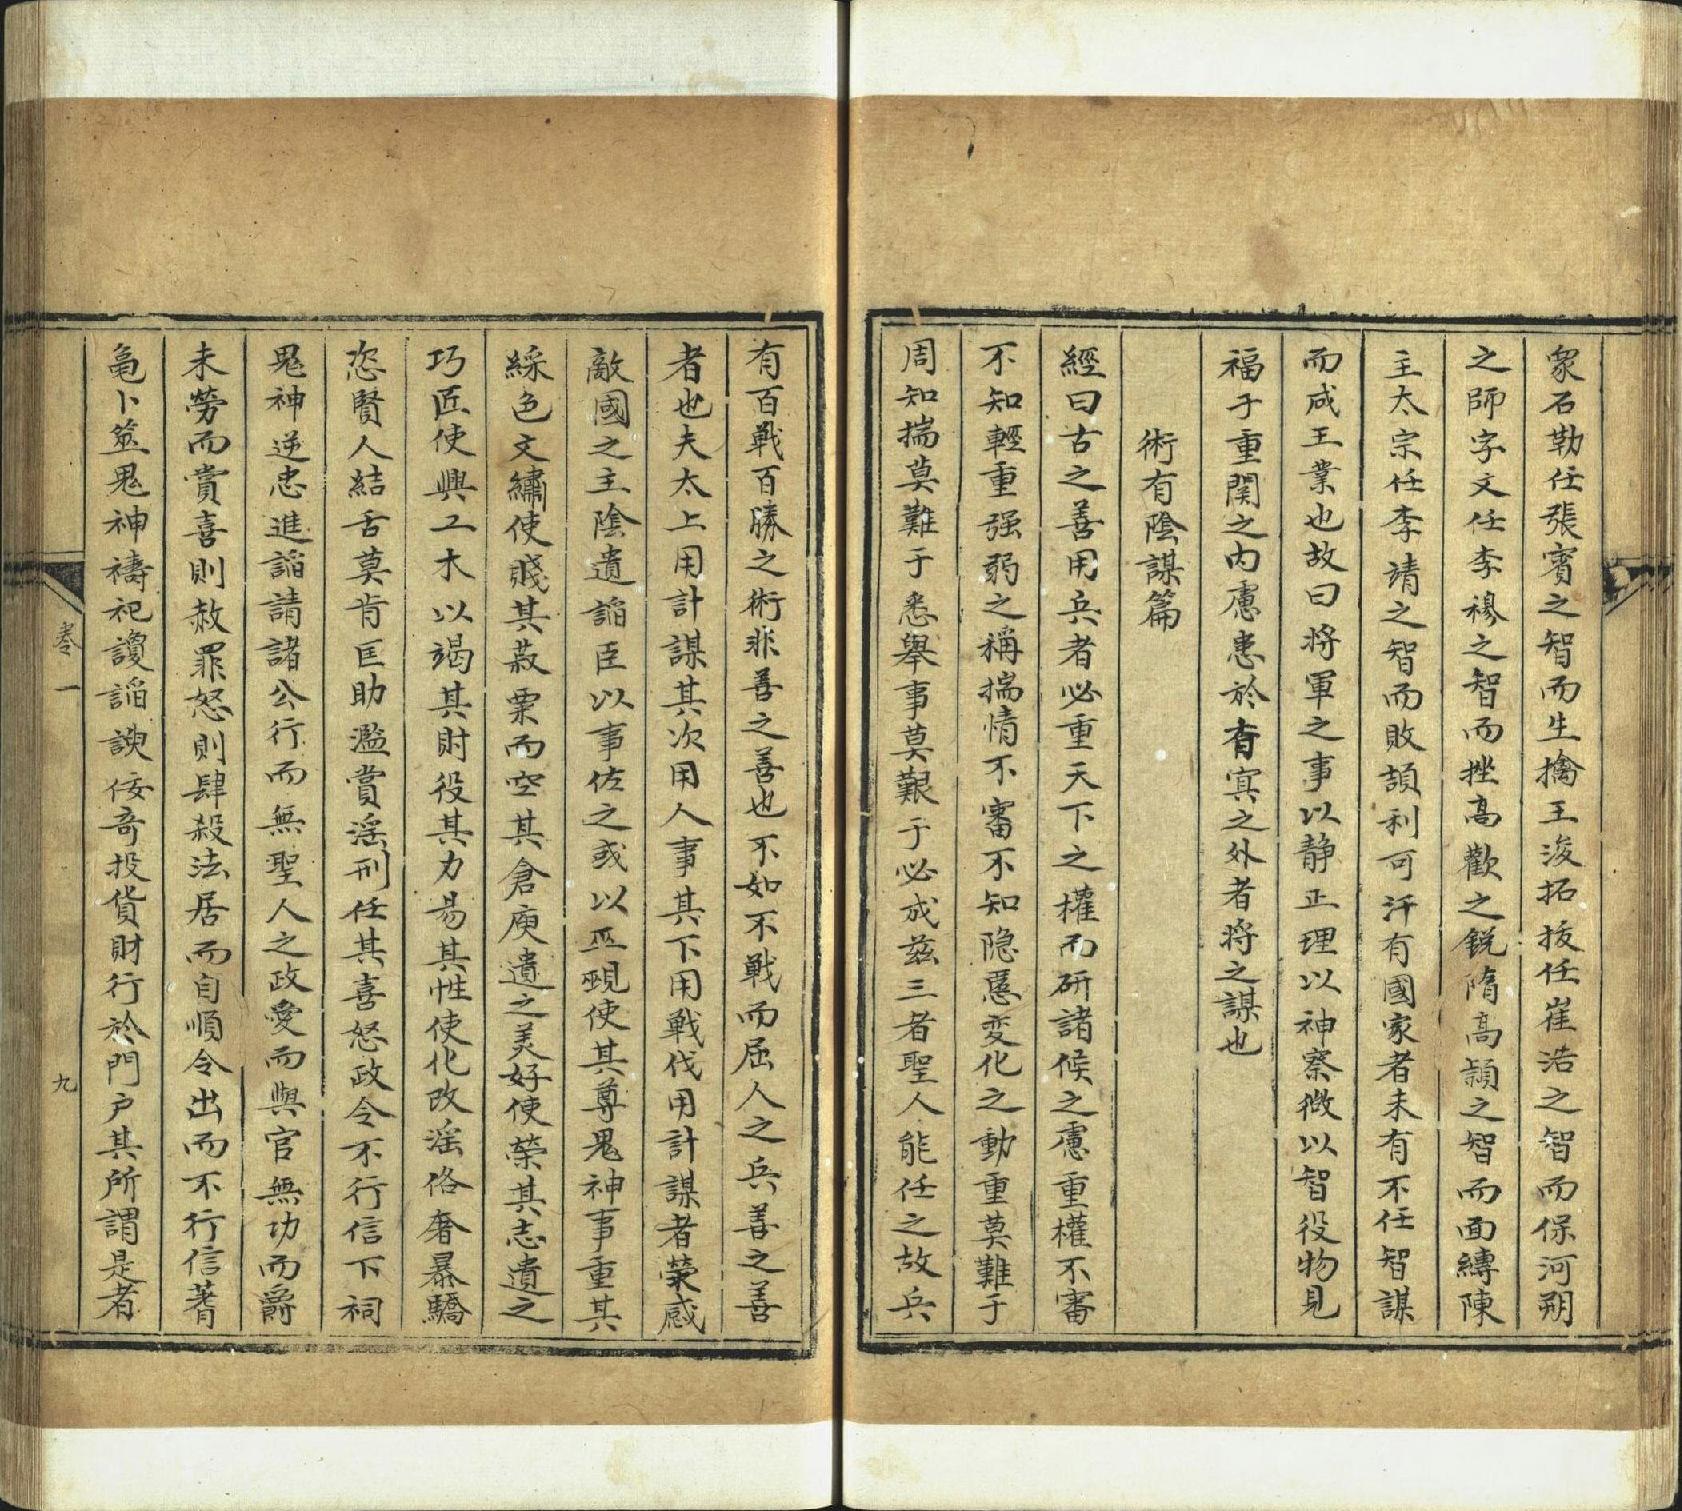 衆石勒任張賓之智而生擒王浚拓拔任崔浩之智而保河朔
之師字文任李穆之智而挫高歡之銳隋高熲之智而面縛陳
主太宗任李靖之智而敗頡利可汗有國家者未有不任智謀
而成王業也故曰将軍之事以静正理以神察微以智役物見
福于重関之內慮患於杳冥之外者将之謀也
術有陰謀篇
經曰古之善用兵者必重天下之權而研諸候之慮重權不審
不知輕重强弱之稱揣情不審不知隐慝变化之動重莫難于
周知揣莫難于悉舉事莫艱于必成兹三者聖人能任之故兵
有百戰百勝之術非善之善也不如不戰而屈人之兵善之善
者也夫太上用計謀其次用人事其下用戰伐用計謀者荧惑
敵國之主陰遺謟臣以事佐之或以巫覡使其尊鬼神事重其
綵色文繡使賤其菽栗而空其倉庾遺之美好使榮其志遺之
巧匠使興工木以竭其財役其力易其性使化改滛俗奢暴驕
恣賢人結舌莫肯匡助濫賞滛刑任其喜怒政令不行信卜祠
鬼神逆忠進謟請諸公行而無聖人之政愛而與官無功而爵
未勞而賞喜則赦罪怒則肆殺法居而自順令出而不行信蓍
龜卜筮鬼神禱祀讒謟諛佞奇投貨財行於門户其所謂是者
卷一
九